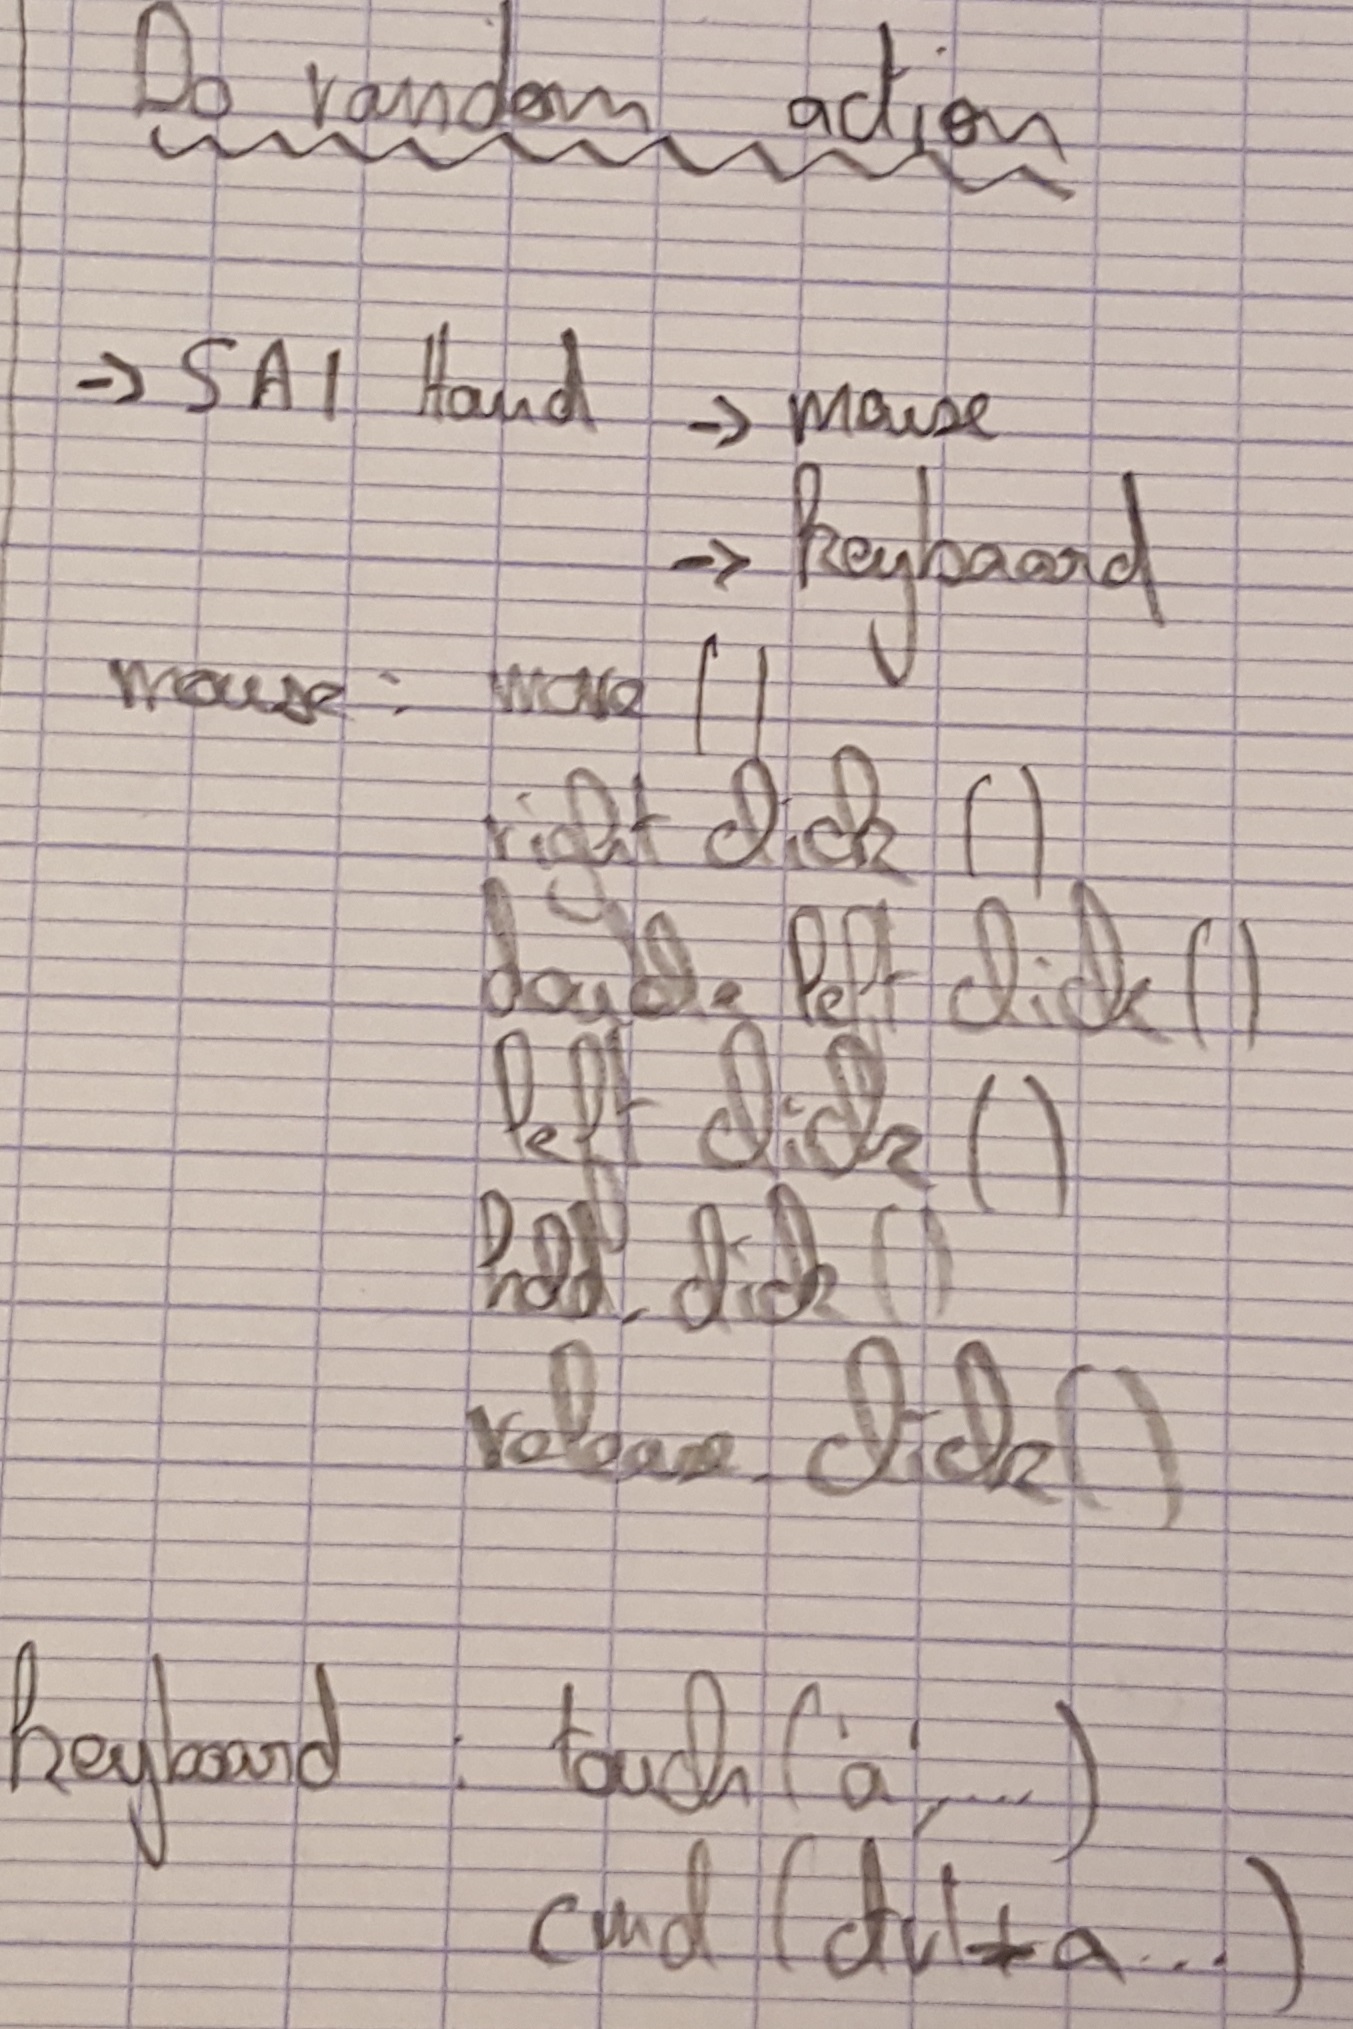 Do random action
-> SAI Hand -> mouse
-> keyboard
mouse : move ()
right click ()
double left click ()
left click ()
hold_click ()
release_click ()
keyboard : touch ('a', ...)
cmd (ctrl+a ...)